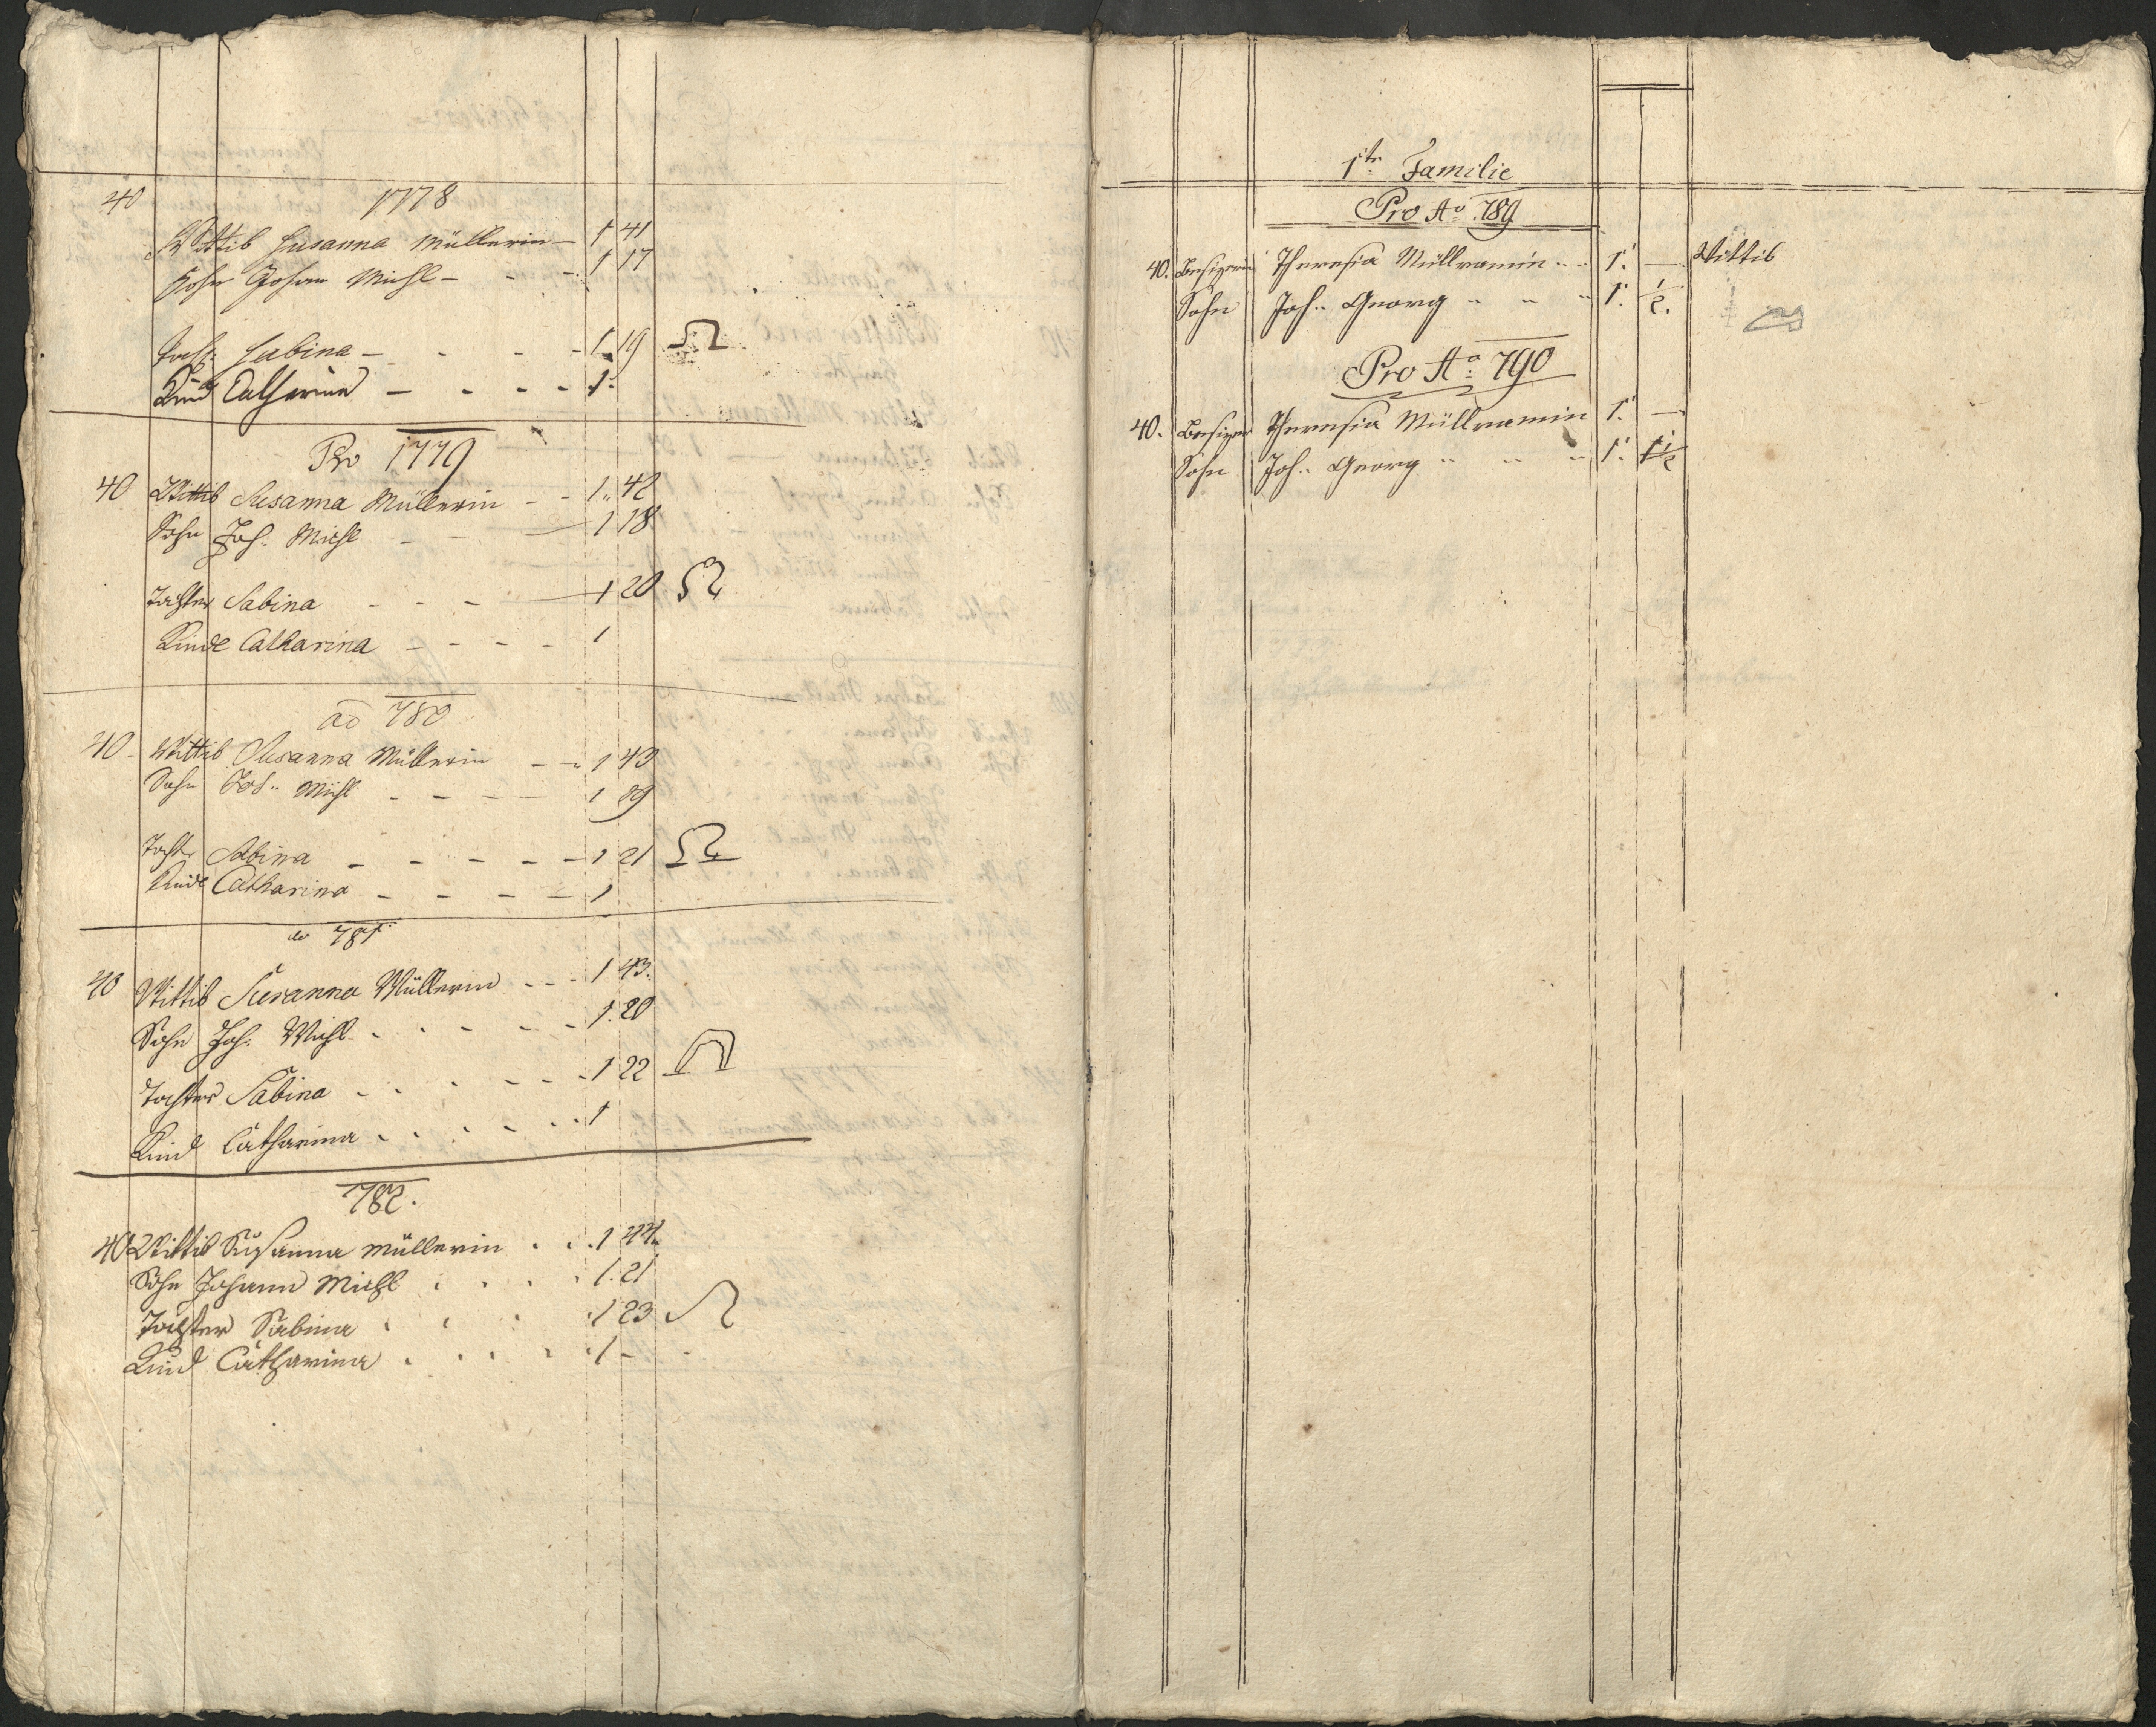 1778
40 Wittib Susanna Müllerin – 1 41
Sohn Johan Michl – - - 1 17
Tocht: Sabina – - - - 1 19
Kind Catharina – - - - 1.
Pro 1779
40 Wittib Susanna Müllerin - - 1 42
Sohn Joh: Michl - - — 1 18
Tochter Sabina - - - — 1 20
Kinde Catharina - - - - 1
ad 780
40 - Wittib Susanna Müllerin - - 1 43
Sohn Joh.. Michl - - - — 1 19
Tocht: Sabina - - - - - 1 21
Kinde Catharina - - - - 1
ad 781
40 Wittib Susanna Müllerin - - - 1 43.
Sohn Joh: Michl - - - - - 1. 20
Tochter Sabina - - - - - - 1 22
Kind Catharina - - - - - - 1
782.
40 Wittib Susanna Müllerin . . . 1 44.
Sohn Johann Michl . . . . 1. 21
Tochter Sabina . . . . 1 23
Kind Catharina . . . . . 1 -
1te Familie
Pro Ao 789
40. Besizerin Theresia Müllramin .. .. 1. — Wittib
Sohn Joh.. Georg .. .. .. 1. 1/2.
Pro Ao: 790
40. Besizer Theresia Müllramin 1. —
Sohn Joh.. Georg .. .. .. 1. 1 1/2